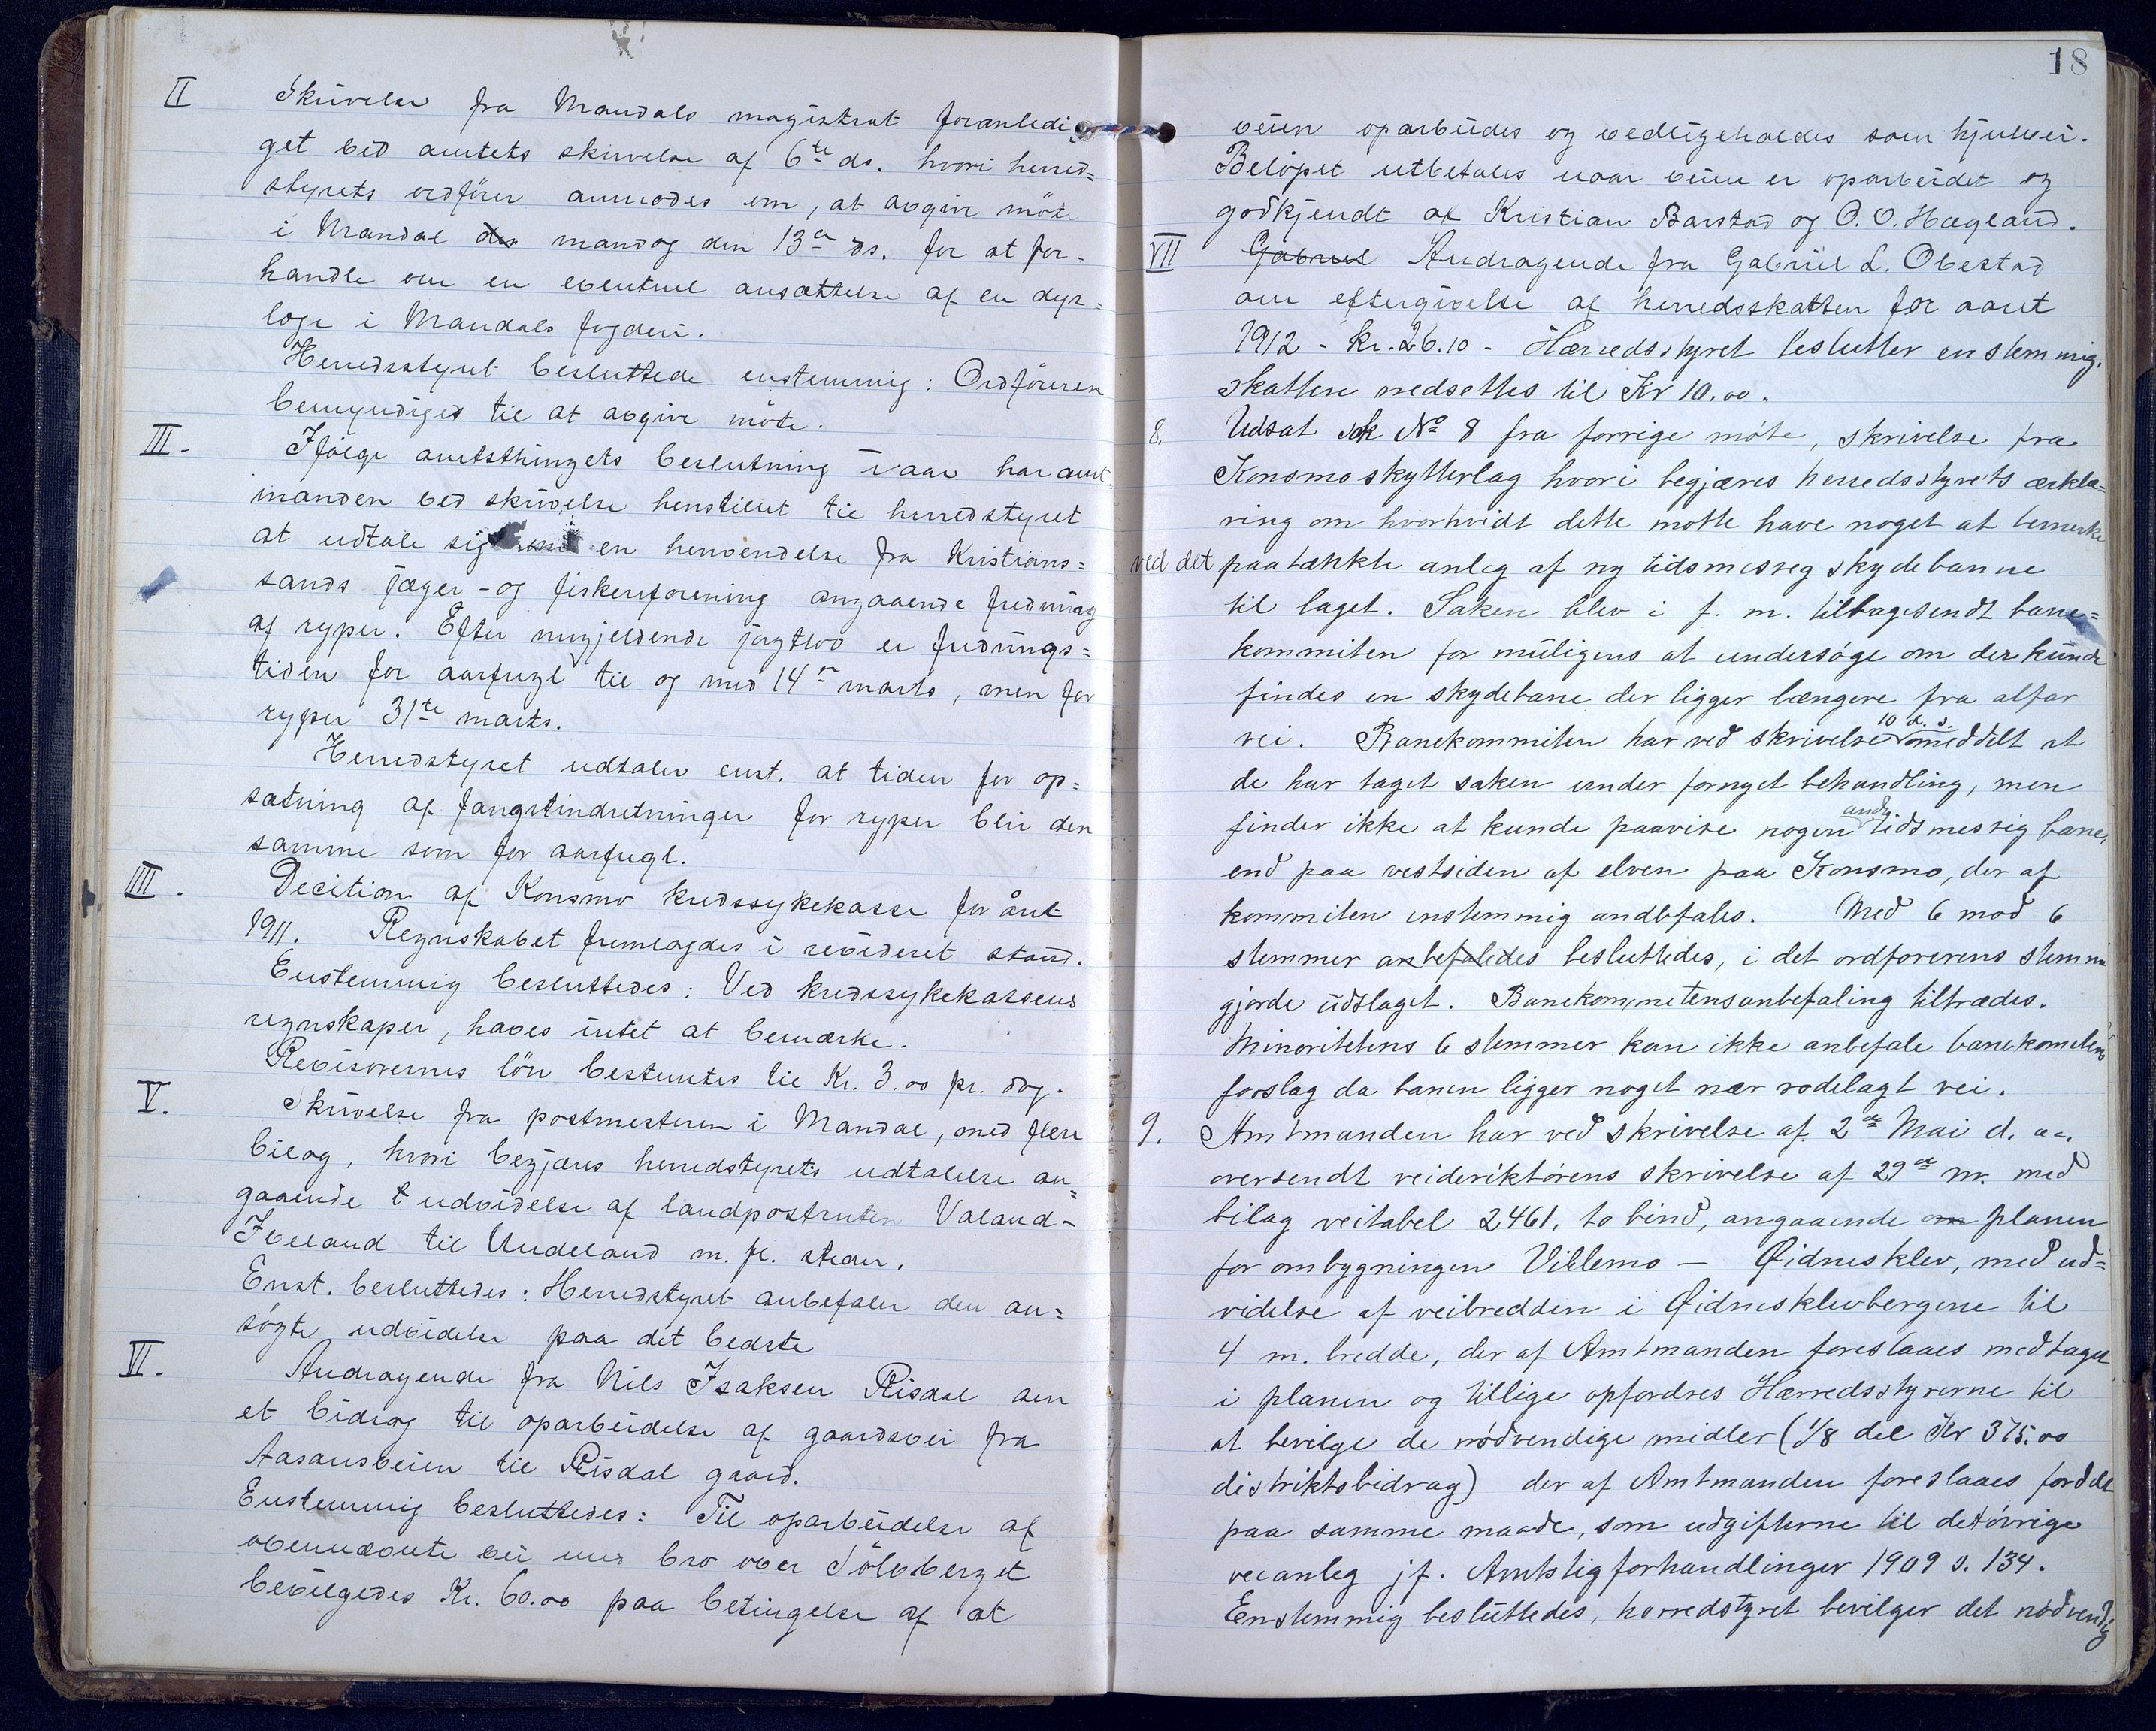 II Skrivelse fra Mandals magistrat foranledi-
get ved amtets skrivelse af 6te ds. hvori herred=
styrets ordfører anmodes om, at avgive möte
i Mandal den mandag den 13de ds. for at for-
handle om en eventuel ansættelse af en dyr=
læge i Mandals fogderi.
Herredsstyret besluttede enstemmig: Ordföreren
bemyndiges til at avgive möte.
III. Ifölge amtsthingets beslutning i aar har amt
manden ved skrivelse henstillet til herredstyret
at udtale sig en henvendelse fra Kristians=
sands jæger- og fiskerforening angaaende fredning
af ryper. Efter nugjeldende jagtlov er frednings=
tiden for aarfugl til og med 14de marts, men for
ryper 31te marts.
Herredstyret udtaler enst. at tiden for op=
sætning af fangstindretninger for ryper blir den
samme som for aarfugl.
III. Decition af Konsmo kredssykekasse for året
1911. Regnskabet fremlagdes i revideret stand.
Enstemmig besluttedes: Ved kredssykekassens
regnskaper, haves intet at bemærke.
Revisorernes lön bestemtes til Kr. 3.00 pr. dag.
V. Skrivelse fra postmesteren i Mandal, med flere
bilag, hvori begjæres herredstyrets udtalelse an=
gaaende t udvidelse af landpostruten Valand-
Iveland til Undeland m. fl. steder.
Enst. besluttedes: Herredstyret anbefaler den an=
søgte udvidelse paa det bedste
VI. Andragende fra Nils Isaksen Risdal om
et bidrag til oparbeidelse af gaardsvei fra
Aasansveien til Risdal gaard.
Enstemmig besluttedes: Til oparbeidelse af
ovennævnte vei med bro over Sölvberget
bevilgedes Kr. 60.00 paa betingelse af at
18
veien oparbeides og vedligeholdes som hjulvei.
Belöpet utbetales naar veien er oparbeidet og
godkjendt af Kristian Barstad og O. O. Hægland.
VII Gabriel Andragende fra Gabriel L. Obestad
om eftergivelse af herredsskatten for aaret
1912 - kr. 26.10 - Hærredsstyret beslutter enstemmig,
skatten nedsettes til Kr 10.00.
8. Udsat sak No 8 fra forrige møte, skrivelse fra
Konsmo skytterlag hvori begjæres herredsstyrets erklæ=
ring om hvorhvidt dette motte have noget at bemerke
ved det paatænkte anlæg af ny tidsmesseg skydebanne
til laget. Saken blev i f. m. tilbagesendt bane=
kommiten for muligens at undersöge om der kunde
findes en skydebane der ligger længere fra alfar
vei. Banekommiten har ved skrivelse 10 d. s. meddelt at
de har taget saken under fornyet behandling, men
finder ikke at kunde paavise nogen andy tidsmessig bane,
end paa vestsiden af elven paa Konsmo, der af
kommiten enstemmig andbfales. Med 6 mod 6
stemmer anbefaledes besluttedes, i det ordforerens stemme
gjorde udslaget. Banekommetens anbefaling tiltrædes.
Minoritetens 6 stemmer kan ikke anbefale banekometens
forslag da banen ligger noget nær rodelagt vei.
9. Amtmanden har ved skrivelse af 2de Mai d. a.
oversendt veideriktörens skrivelse af 29de m. med
bilag veitabel 2461, to bind, angaaende om planen
for ombygningen Villemo - Øidnesklev, med ud=
videlse af veibredden i Øidnesklevbergene til
4 m. bredde, der af Amtmanden foreslaaes medtaget
i planen og tillige opfordres Hærredsstyrerne til
at bevilge de nödvendige midler (1/8 del Kr 375.00
distriktsbidrag) der af Amtmanden foreslaaes fordelt
paa samme maade, som udgifterne til det övrige
veianleg jf. Amtstigforhandlinger 1909 s. 134.
Enstemmig besluttedes, herredstyret bevilger det nödvendig